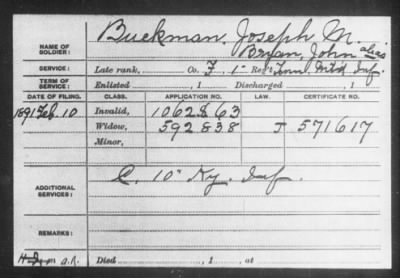 NAME OF SOLDIER: Buckman, Joseph M.
Bryan, John alias
SERVICE: Late rank, Co. F, 1" Reg't Tenn. Inf.
TERM OF SERVICE: Enlisted , 1 Discharged , 1
DATE OF FILING. CLASS. APPLICATION NO. LAW. CERTIFICATE NO.
1891 Feb. 10 Invalid, 1062863
Widow, 592838 J 571617
Minor,
ADDITIONAL SERVICES: C. 10" Ky. Inf.
REMARKS:
Died , 1 , at